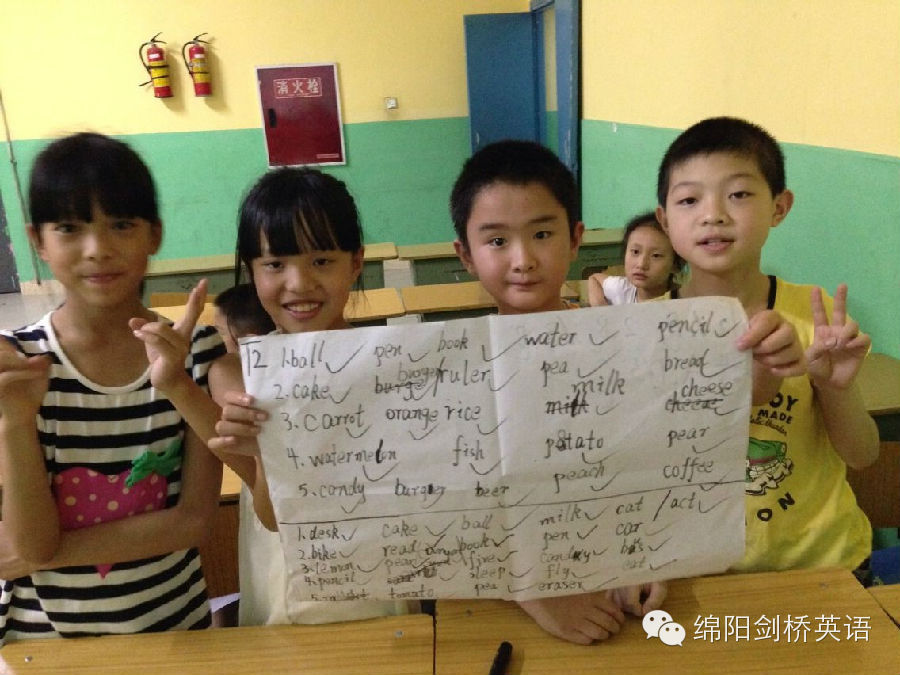 消火栓
12 1. ball pen book water pencil
2. cake burger ruler pea bread
3. carrot orange rice milk cheese
4. watermelon fish potato pear
5. candy burger beer peach coffee
1. desk cake ball milk cat / act
2. bike read book pen car
3. lemon pear five candy bus
4. pencil sleep fly eat
5. tomato pea eraser
MADE
绵阳剑桥英语